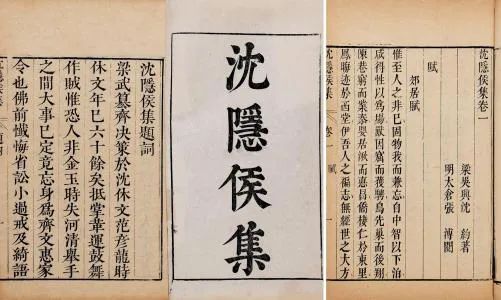 沈隱侯集卷一
梁吳興沈約著
明太倉張溥閱
賦
郊居賦
惟至人之非已固物我而兼忘自中智以下洎
咸得性以爲場獸因窟而獲騁鳥先巢而後翔
陳巷窮而業泰嬰居湫而德昌僑棲仁於東里
鳳晦迹於西堂伊吾人之褊志無經世之大方
沈隱侯集 卷一 賦
沈隱侯集
沈隱侯集題詞
梁武簒齊決策於沈休文范彥龍時
休文年已六十餘矣抵掌革運鼓舞
作賊惟恐人非金玉時失河清舉手
之間大事已定竟忘身爲齊文惠家
令也佛前懺悔省訟小過戒及綺語